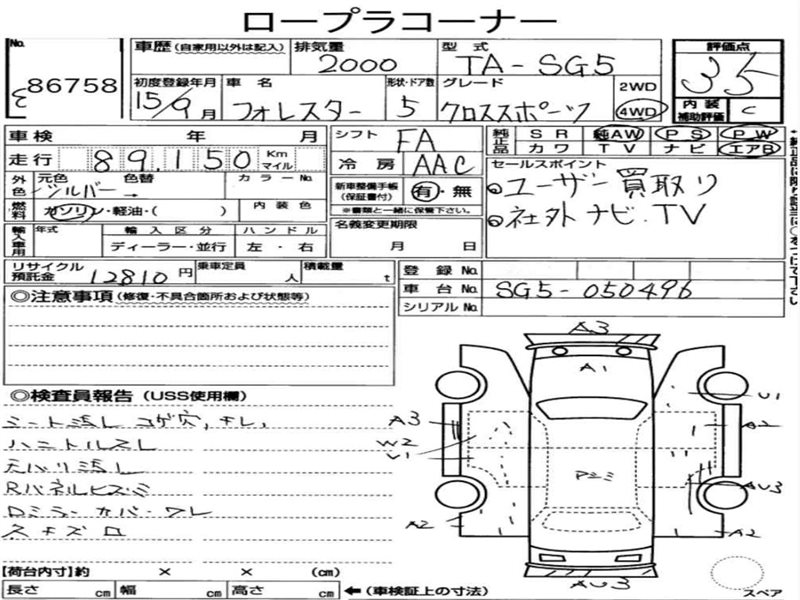 ロープラコーナー
No. 86758
車歴 (自家用以外は記入) 排気量 2000 型式 TA-SG5 評価点 3.5
初度登録年月 15/9月 車名 フォレスター 形状・ドア数 5 グレード クロススポーツ 2WD 4WD 内装補助評価 C
車検 年 月 シフト FA 純正品 SR 純AW PS PW
カワ TV ナビ エアB
走行 89,150 Km マイル 冷房 AAC
外色 元色 シルバー 色替 カラーNo. 新車整備手帳 (保証書付) 有・無 ※書類と一緒に保管下さい。
セールスポイント
・ユーザー買取り
・社外ナビ.TV
燃料 ガソリン・軽油・( ) 内装色
名義変更期限 月 日
輸入車用 年式 輸入区分 ディーラー・並行 ハンドル 左・右
リサイクル預託金 12810円 乗車定員 人 積載量 t
登録No.
車台No. SG5-050496
シリアルNo.
◎注意事項 (修復・不具合箇所および状態等)
◎検査員報告 (USS使用欄)
シート汚レ コゲ穴,キレ,
ハンドルスレ
天バリ汚レ
Rパネルヒズミ
Dミラーカバーワレ
スキズロ
A3
A1
U1
A3
A2
W2
U1
アミミ
AU3
A2
A2
AU3
スペア
【荷台内寸】約 × × (cm)
長さ cm 幅 cm 高さ cm ←(車検証上の寸法)